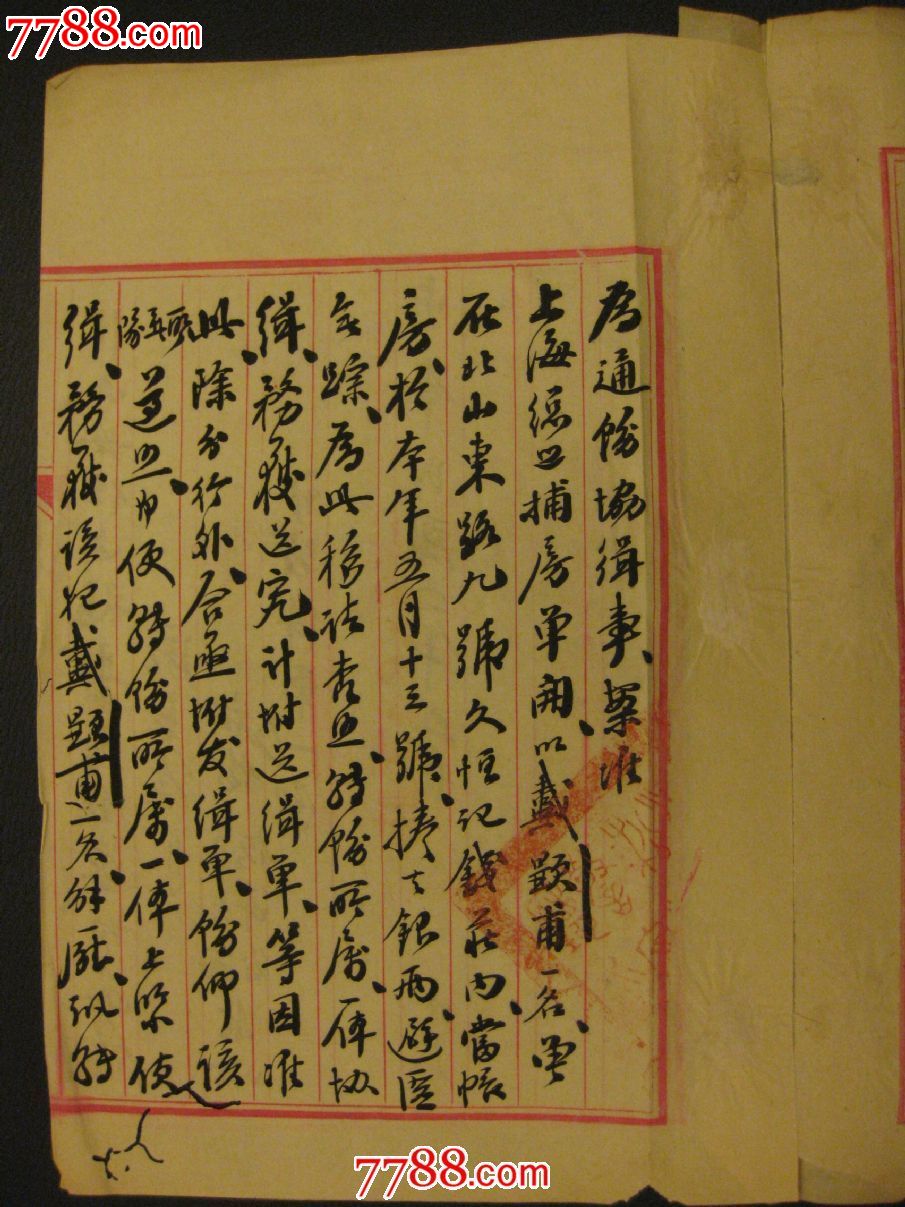 7788.com
7788.com
為通飭協緝事、案准
上海總巡捕房单開、以戴題甫一名、曾
在北山東路九號久恒記錢莊内、當帳
房、於本年五月十三號、捲去銀両、避匿
無踪、為此移請查照、轉飭所屬、一体協
緝、務獲送究、計附送緝单、等因准
此、除分行外、合亟附发緝单、飭仰該
遵照、即便轉飭所屬、一体上緊偵
緝、務獲該犯戴題甫一名、解廳訊辦
7788.com